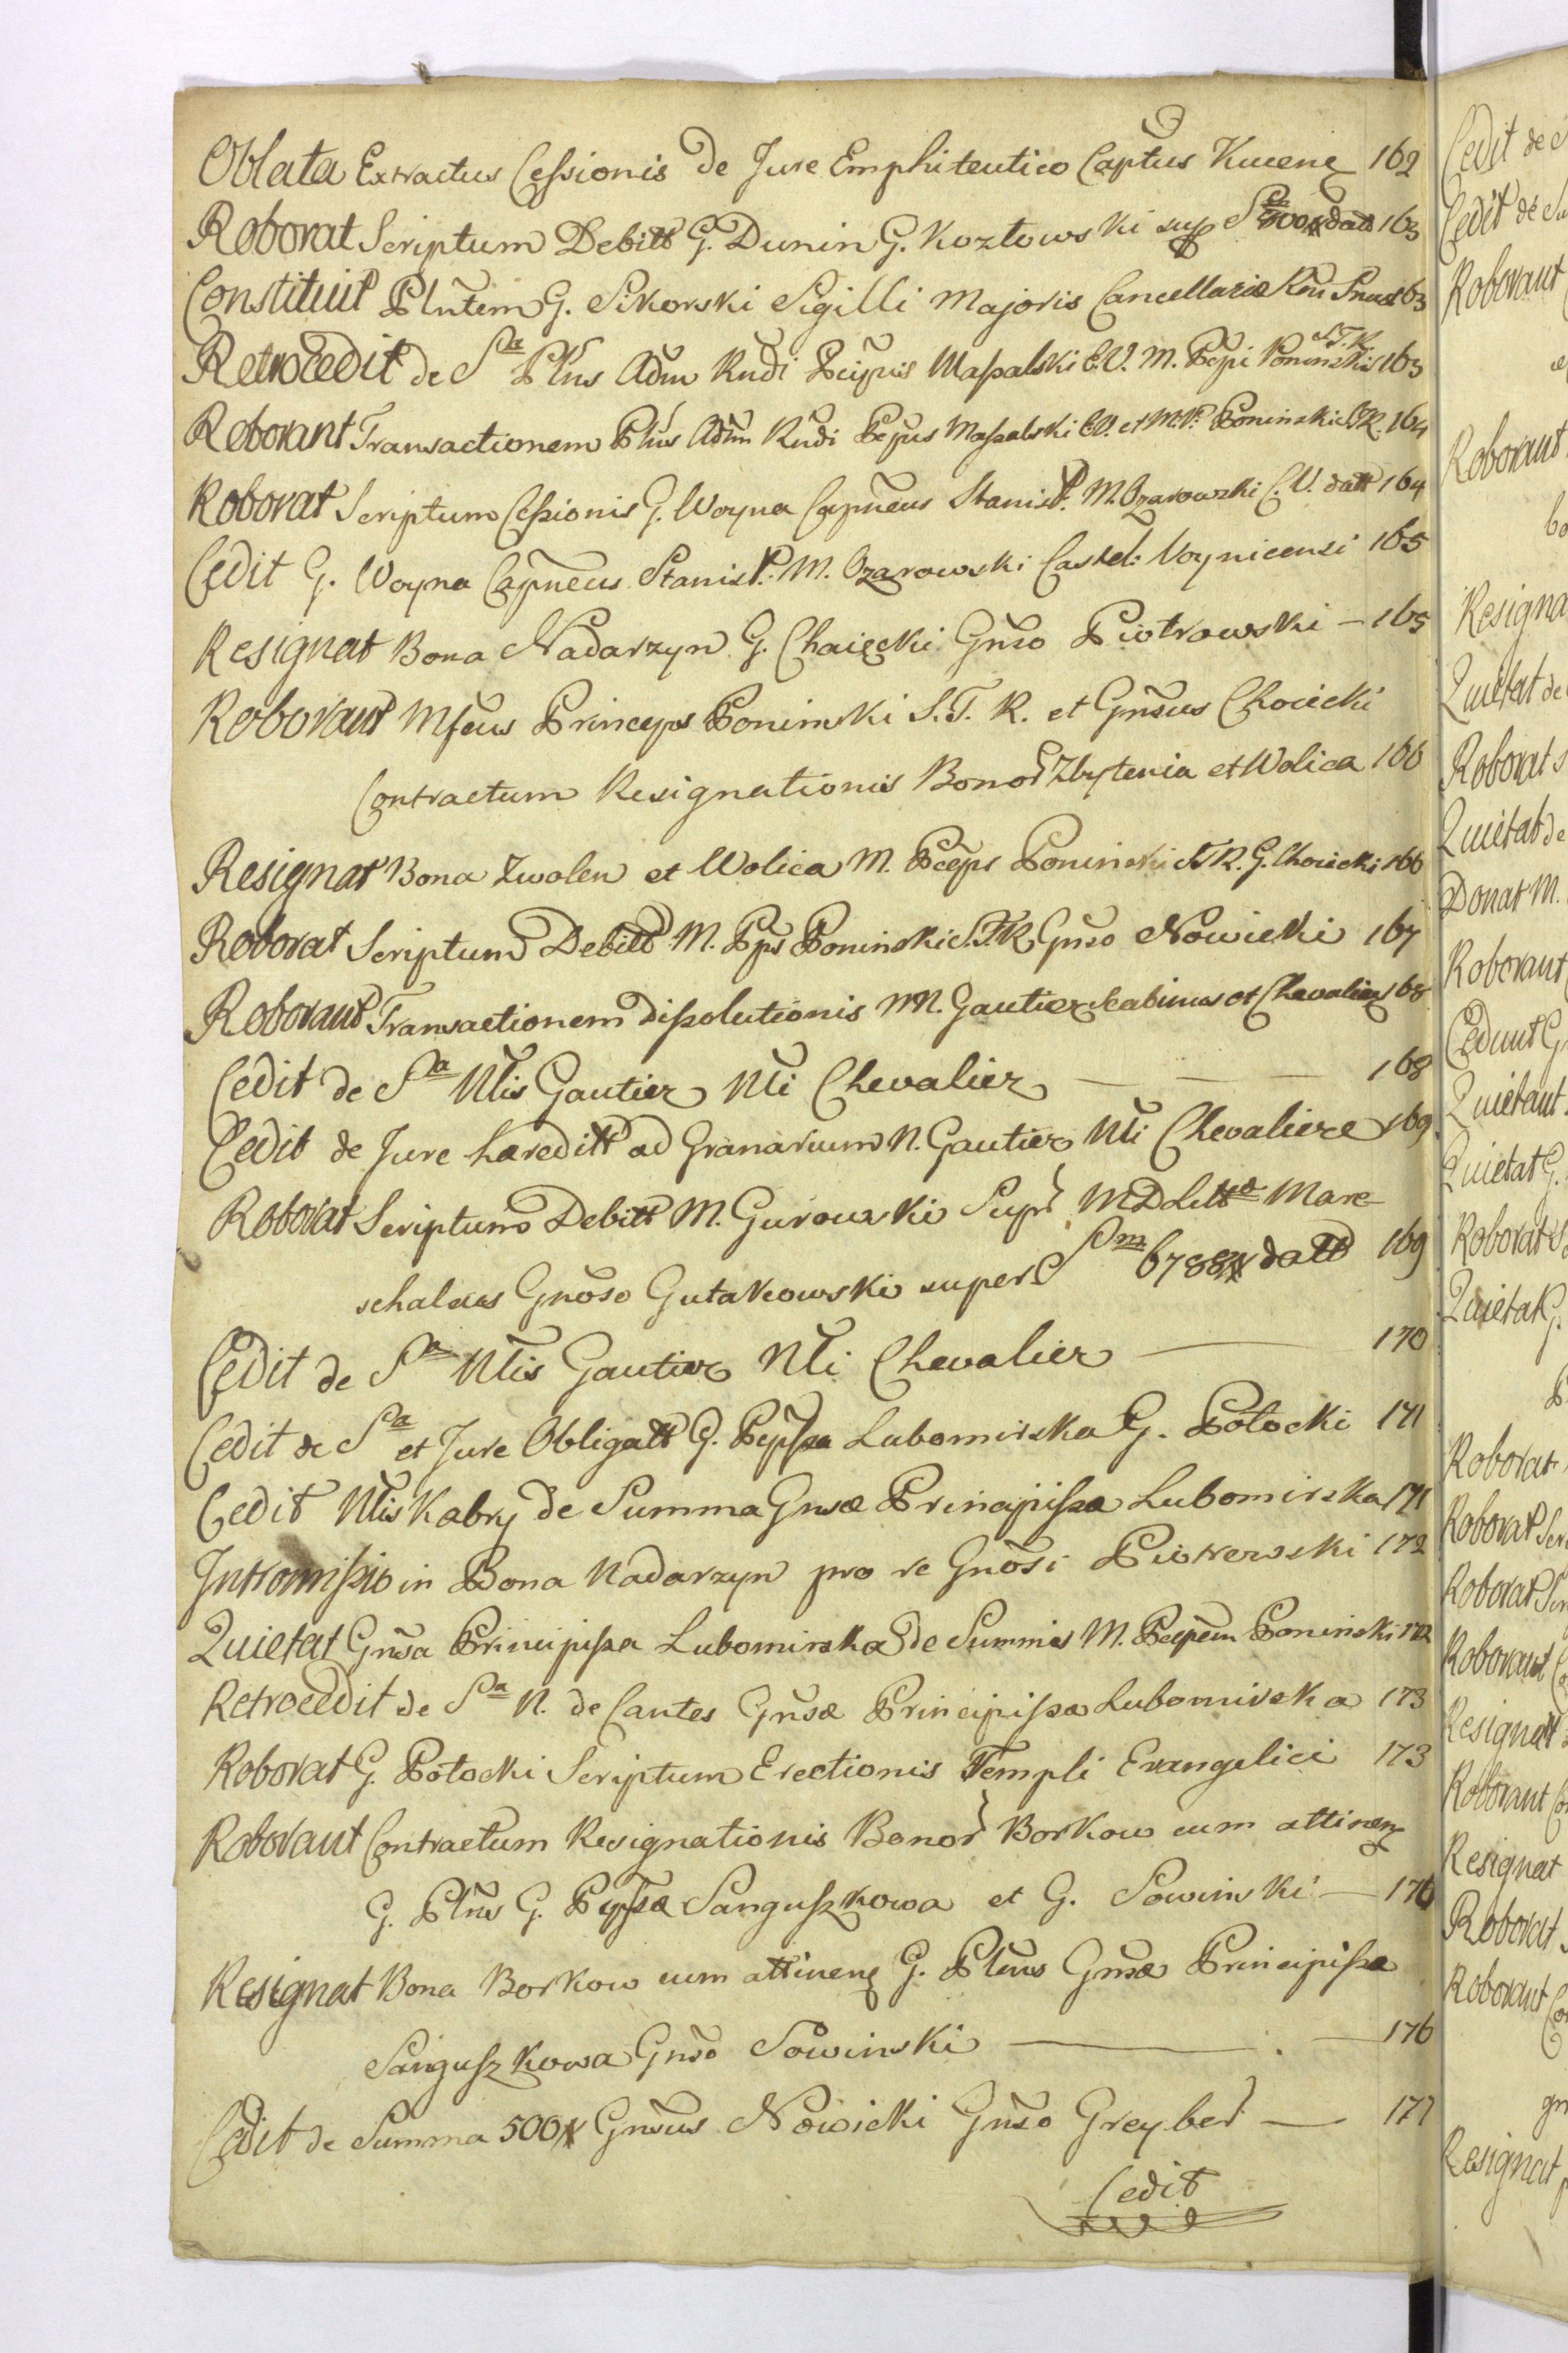 Oblata Extractus Cessionis de Jure Emphiteutico Captus Kucene 162
Roborat Scriptum Debitt G. Dunin G. Kozłowski sup datt 163
Constituit Plntem G. Sikorski Sigilli Majoris Cancellariæ 163
Retrocedit de Sa Plus Adm Rndi Pcipis Massalski E.V. M. Pcpi Poninski S.T.R. 163
Roborant Transactionem Plus Adm Rndi Pcpus Massalski E.V. et M. P. Poninski S.T.R. 164
Roborat Scriptum Cessionis G. Woyna Capneus Stanisl. P. M. Ozarowski C.V. datt 164
Cedit G. Woyna Capneus Stanisl. P. M. Ozarowski Castel: Voynicensi 165
Resignat Bona Nadarzyn G. Chaięcki Gnso Piotrowski — 165
Roborant Mfcus Princeps Poninski S.T.R. et Gnsus Choiecki
Contractum Resignationis Bonor Zbytenia et Wolica 166
Resignat Bona Zwolen et Wolica M. Pceps Poninski S.T.R. G. Choiecki 166
Roborat Scriptum Debitt M. Pps Poninski S.T.R. Gnso Nowicki 167
Roborant Transactionem Dissolutionis NN. Gautier Scabinus et Chevalier 168
Cedit de Sa Nlis Gautier Nli Chevalier — — — 168
Cedit de Jure hæreditt ad Granarium N. Gautier Nli Chevaliere 169
Roborat Scriptum Debitt M. Gurowski Supr M D Litt Mare
schalcus Gnoso Gutakowski super Sm 6788# datt 169
Cedit de Sa Nlis Gautier Nli Chevalier — 170
Cedit de Sa et Jure Obligatt G. Pcpssa Lubomirska G. Potocki 171
Cedit Nlis Kabry de Summa Gnsæ Principissæ Lubomirska 171
Intromissio in Bona Nadarzyn pro re Gnosi Piotrowski 172
Quietat Gnsa Principissa Lubomirska de Summis M. Pcipem Poninski 172
Retrocedit de Sa N. de Cantes Gnsæ Principissæ Lubomirska 173
Roborat G. Potocki Scriptum Erectionis Templi Evangelici 173
Roborant Contractum Resignationis Bonor Borkow cum attinen
G. Plus G. Ppssæ Sanguszkowa et G. Sowinski — 176
Resignat Bona Borkow cum attinen G. Plus Gnsæ Principissæ
Sanguszkowa Gnso Sowinski — 176
Cedit de Summa 500# Gnsus Nowicki Gnso Greyber — 177
Cedit
Cedit de
Cedit de
Roborant
Roborant
Resigna
Quietat de
Roborat
Quietat de
Donat M.
Roborant
Cedunt G
Quietant
Quietat G.
Roborat
Quietat G.
Roborat
Roborat
Roborat
Roborant
Resignat
Roborant
Resignat
Roborat
Roborant
Resignat